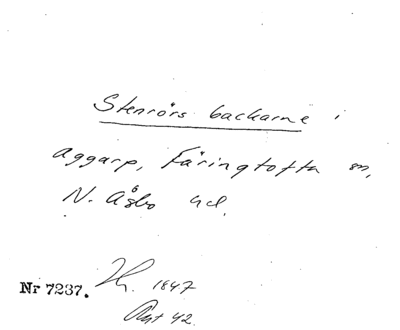 Stenrörs backarne i
Aggarp, Färingtofta sn,
N. Åsbo hd.
Nr 7237.
1847
42